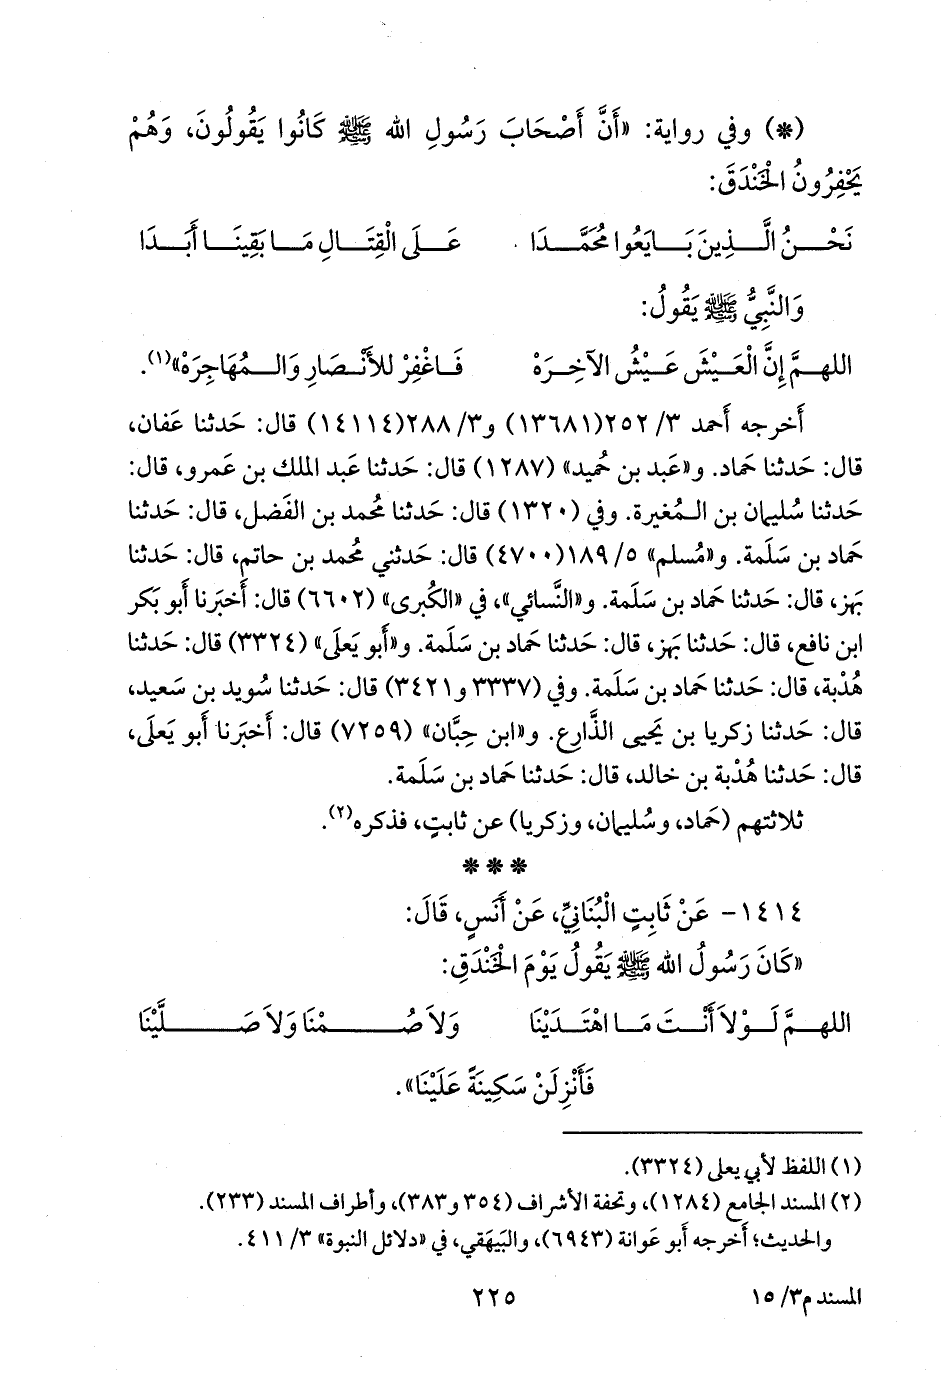 (*) وفي رواية: «أَنَّ أَصْحَابَ رَسُولِ الله ﷺ كَانُوا يَقُولُونَ، وَهُمْ
يَحْفِرُونُ الخَنْدَقَ:
نَحْنُ الَّذِينَ بَايَعُوا مُحَمَّدَا عَلَى الْقِتَالِ مَا بَقِينَا أَبَدَا
وَالنَّبِيُّ ﷺ يَقُولُ:
اللهمَّ إِنَّ الْعَيْشَ عَيْشُ الآخِرَهْ فَاغْفِرْ للأَنْصَارِ وَالمُهَاجِرَهْ»(١).
أَخرجه أَحمد ٣/ ٢٥٢(١٣٦٨١) و٣/ ٢٨٨(١٤١١٤) قال: حَدثنا عَفان،
قال: حَدثنا حَماد. و«عَبد بن حُميد» (١٢٨٧) قال: حَدثنا عَبد الملك بن عَمرو، قال:
حَدثنا سُليمان بن المُغيرة. وفي (١٣٢٠) قال: حَدثنا مُحمد بن الفَضل، قال: حَدثنا
حَماد بن سَلَمة. و«مُسلم» ٥/ ١٨٩(٤٧٠٠) قال: حَدثني مُحمد بن حاتم، قال: حَدثنا
بَهز، قال: حَدثنا حَماد بن سَلَمة. و«النَّسائي»، في «الكُبرى» (٦٦٠٢) قال: أَخبَرنا أَبو بَكر
ابن نافع، قال: حَدثنا بَهز، قال: حَدثنا حَماد بن سَلَمة. و«أَبو يَعلَى» (٣٣٢٤) قال: حَدثنا
هُدْبة، قال: حَدثنا حَماد بن سَلَمة. وفي (٣٣٣٧ و٣٤٢١) قال: حَدثنا سُويد بن سَعيد،
قال: حَدثنا زكريا بن يَحيى الذَّارع. و«ابن حِبَّان» (٧٢٥٩) قال: أَخبَرنا أَبو يَعلَى،
قال: حَدثنا هُدْبة بن خالد، قال: حَدثنا حَماد بن سَلَمة.
ثلاثتهم (حَماد، وسُليمان، وزكريا) عن ثابتٍ، فذكره(٢).
***
١٤١٤- عَنْ ثَابِتٍ الْبُنَانِيِّ، عَنْ أَنَسٍ، قَالَ:
«كَانَ رَسُولُ الله ﷺ يَقُولُ يَوْمَ الخَنْدَقِ:
اللهمَّ لَوْلاَ أَنْتَ مَا اهْتَدَيْنَا وَلاَ صُمْنَا وَلاَ صَلَّيْنَا
فَأَنْزِلَنْ سَكِينَةً عَلَيْنَا».
(١) اللفظ لأبي يعلى (٣٣٢٤).
(٢) المسند الجامع (١٢٨٤)، وتحفة الأشراف (٣٥٤ و٣٨٣)، وأطراف المسند (٢٣٣).
والحديث؛ أَخرجه أَبو عَوانة (٦٩٤٣)، والبَيهَقي، في «دلائل النبوة» ٣/ ٤١١.
المسند م٣/ ١٥
٢٢٥